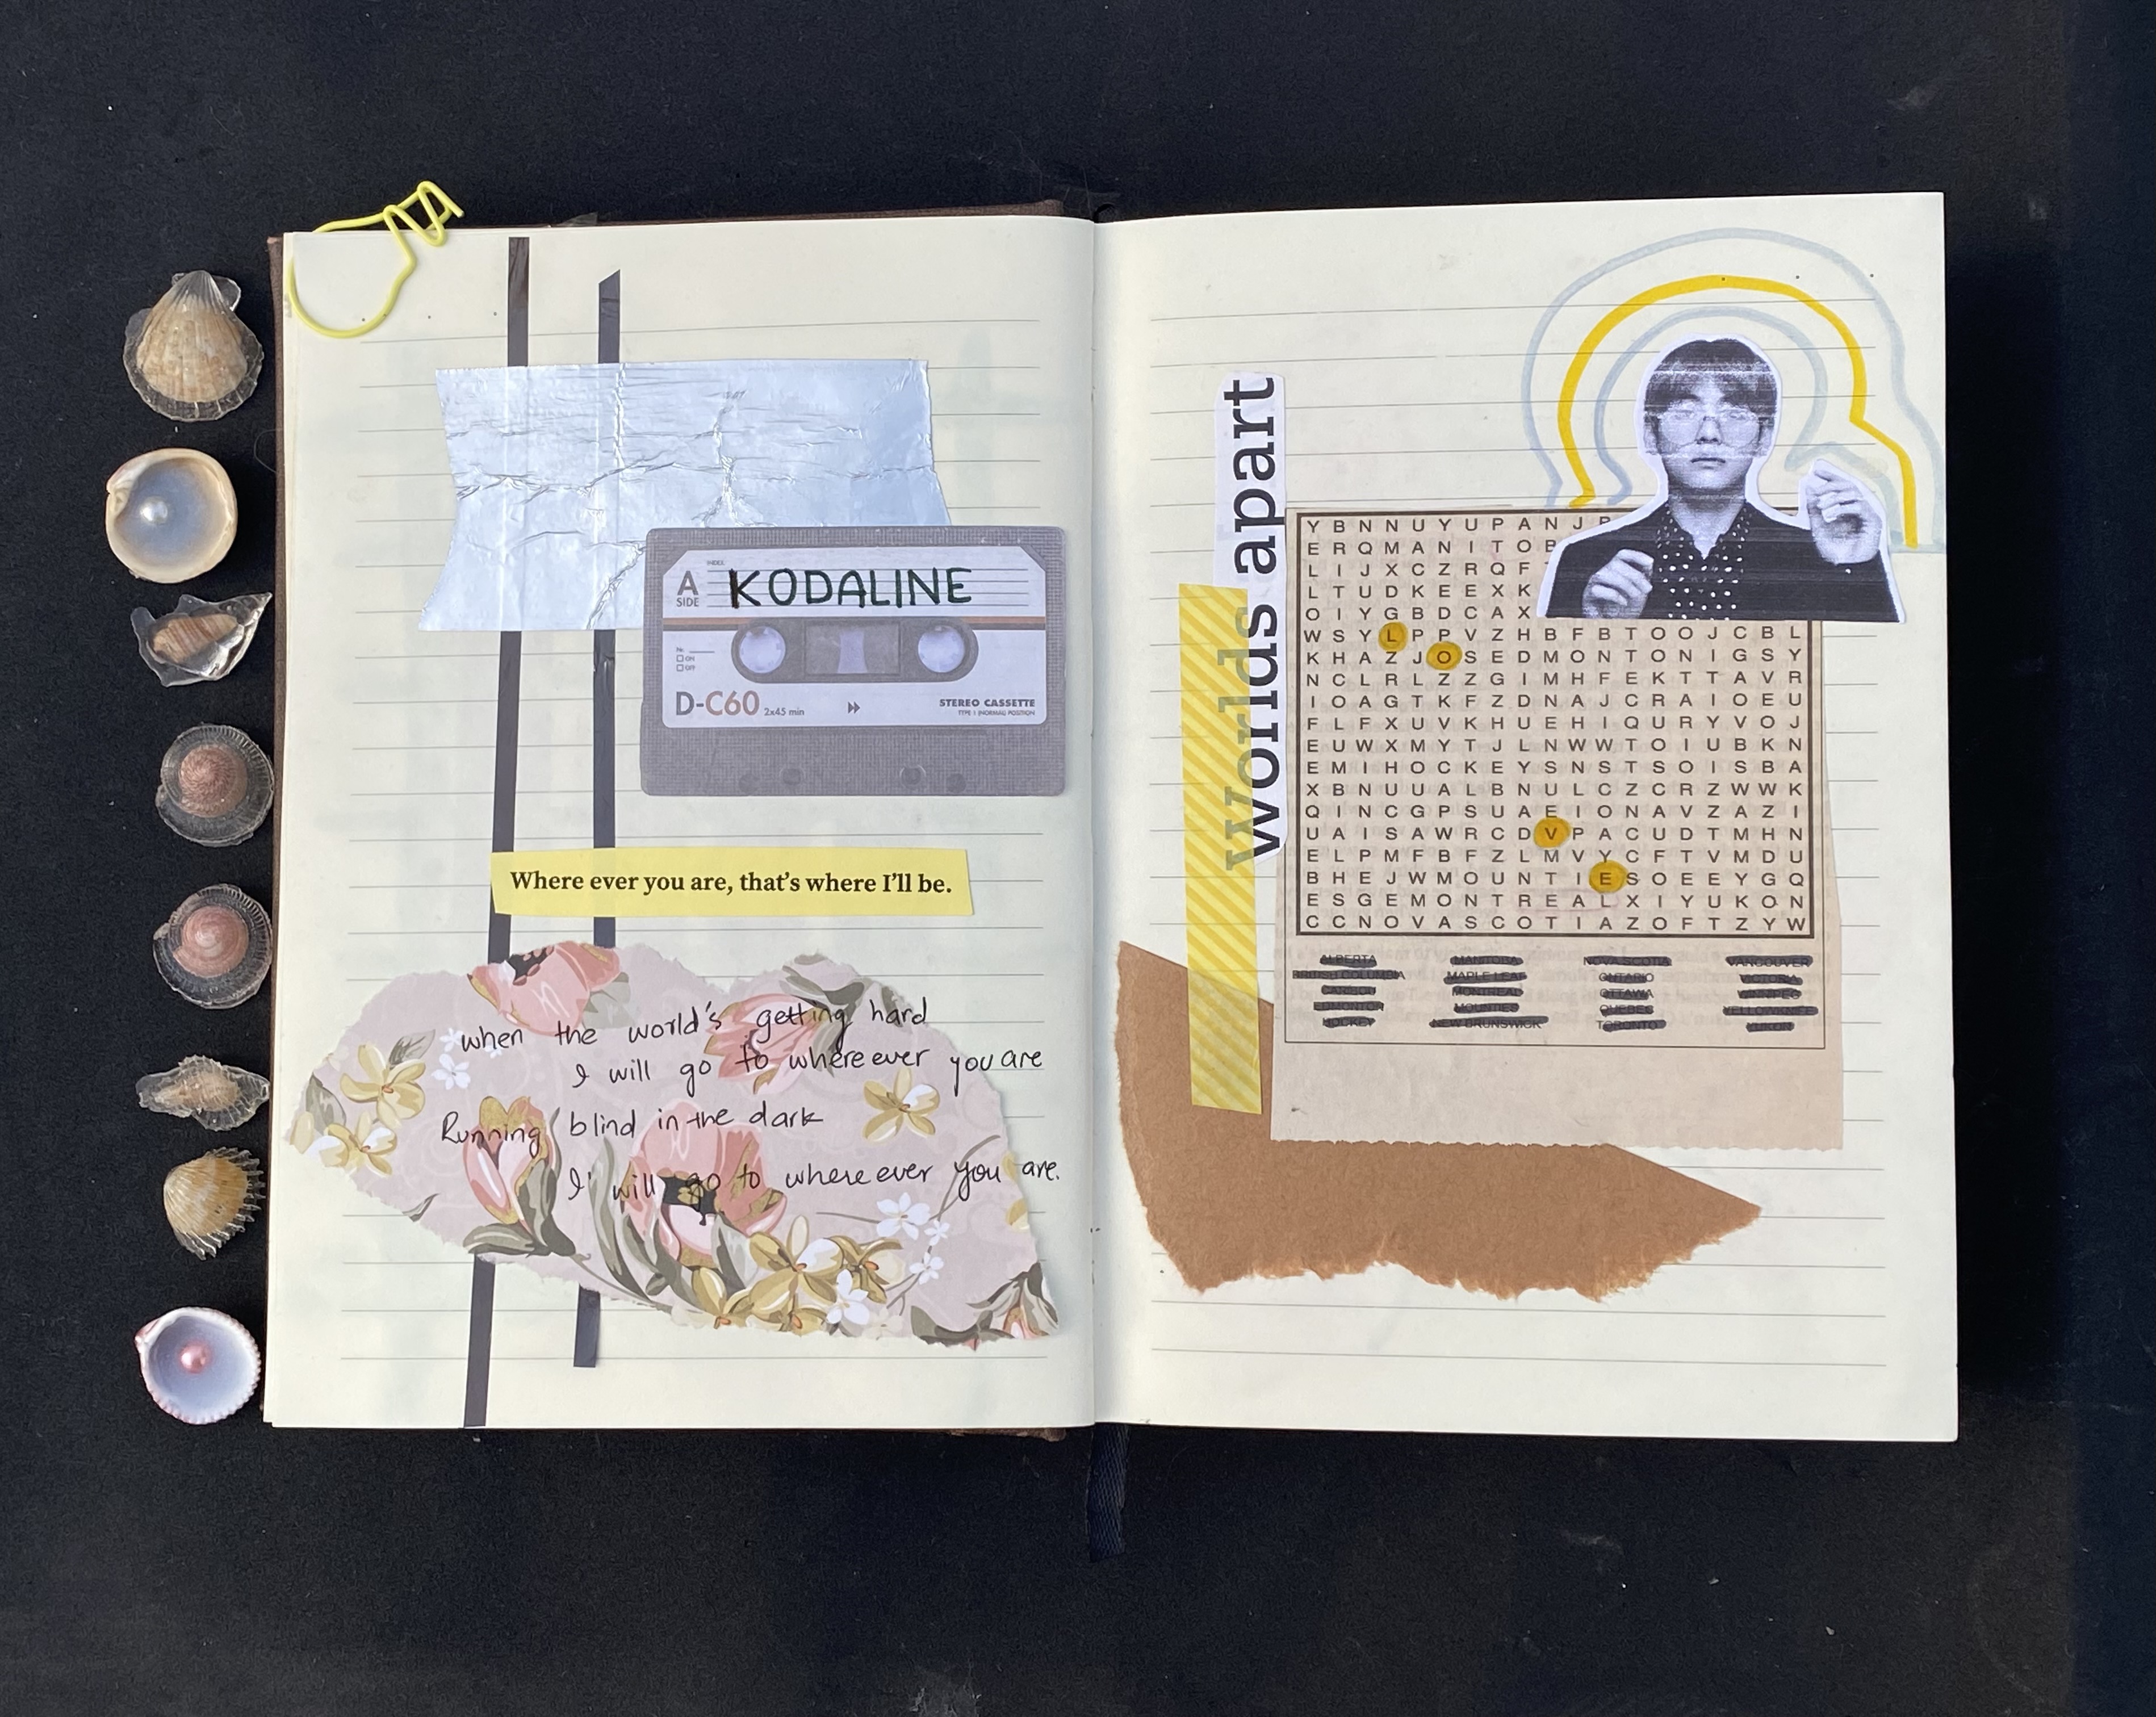 INDEX
A
SIDE
KODALINE
Nr.
ON
OFF
D-C60 2x45 min
STEREO CASSETTE
TYPE I (NORMAL) POSITION
Where ever you are, that's where I'll be.
when the world's getting hard
I will go to where ever you are
Running blind in the dark
I will go to where ever you are.
worlds apart
Y B N N U Y U P A N J
E R Q M A N I T O B
L I J X C Z R Q F
L T U D K E E X K
O I Y G B D C A X
W S Y L P P V Z H B F B T O O J C B L
K H A Z J O S E D M O N T O N I G S Y
N C L R L Z Z G I M H F E K T T A V R
I O A G T K F Z D N A J C R A I O E U
F L F X U V K H U E H I Q U R Y V O J
E U W X M Y T J L N W W T O I U B K N
E M I H O C K E Y S N S T S O I S B A
X B N U U A L B N U L C Z C R Z W W K
Q I N C G P S U A E I O N A V Z A Z I
U A I S A W R C D V P A C U D T M H N
E L P M F B F Z L M V Y C F T V M D U
B H E J W M O U N T I E S O E E Y G Q
E S G E M O N T R E A L X I Y U K O N
C C N O V A S C O T I A Z O F T Z Y W
ALBERTA MANITOBA NOVA SCOTIA VANCOUVER
BRITISH COLUMBIA MAPLE LEAF ONTARIO VICTORIA
MONTREAL OTTAWA WINNIPEG
EDMONTON MOUNTIES QUEBEC YELLOWKNIFE
HOCKEY NEW BRUNSWICK TORONTO YUKON